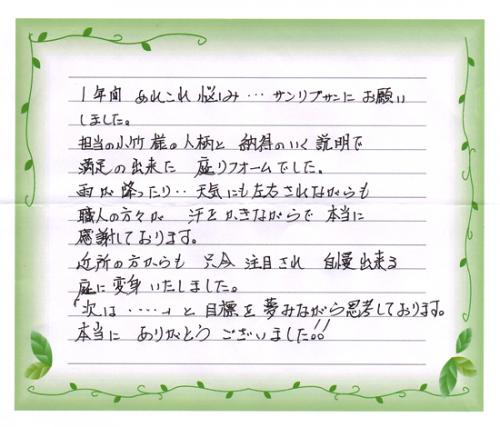 1年間 あれこれ悩み… サンリブサンに お願い
しました。
担当の小竹様の人柄と 納得のいく説明で
満足の出来た 庭リフォームでした。
雨が降ったり‥天気にも左右されながらも
職人の方々が 汗をかきながらで 本当に
感謝しております。
近所の方からも 只今 注目され 自慢出来る
庭に変身いたしました。
「次は・・・・・」と目標を夢みながら思考しております。
本当に ありがとう ございました!!